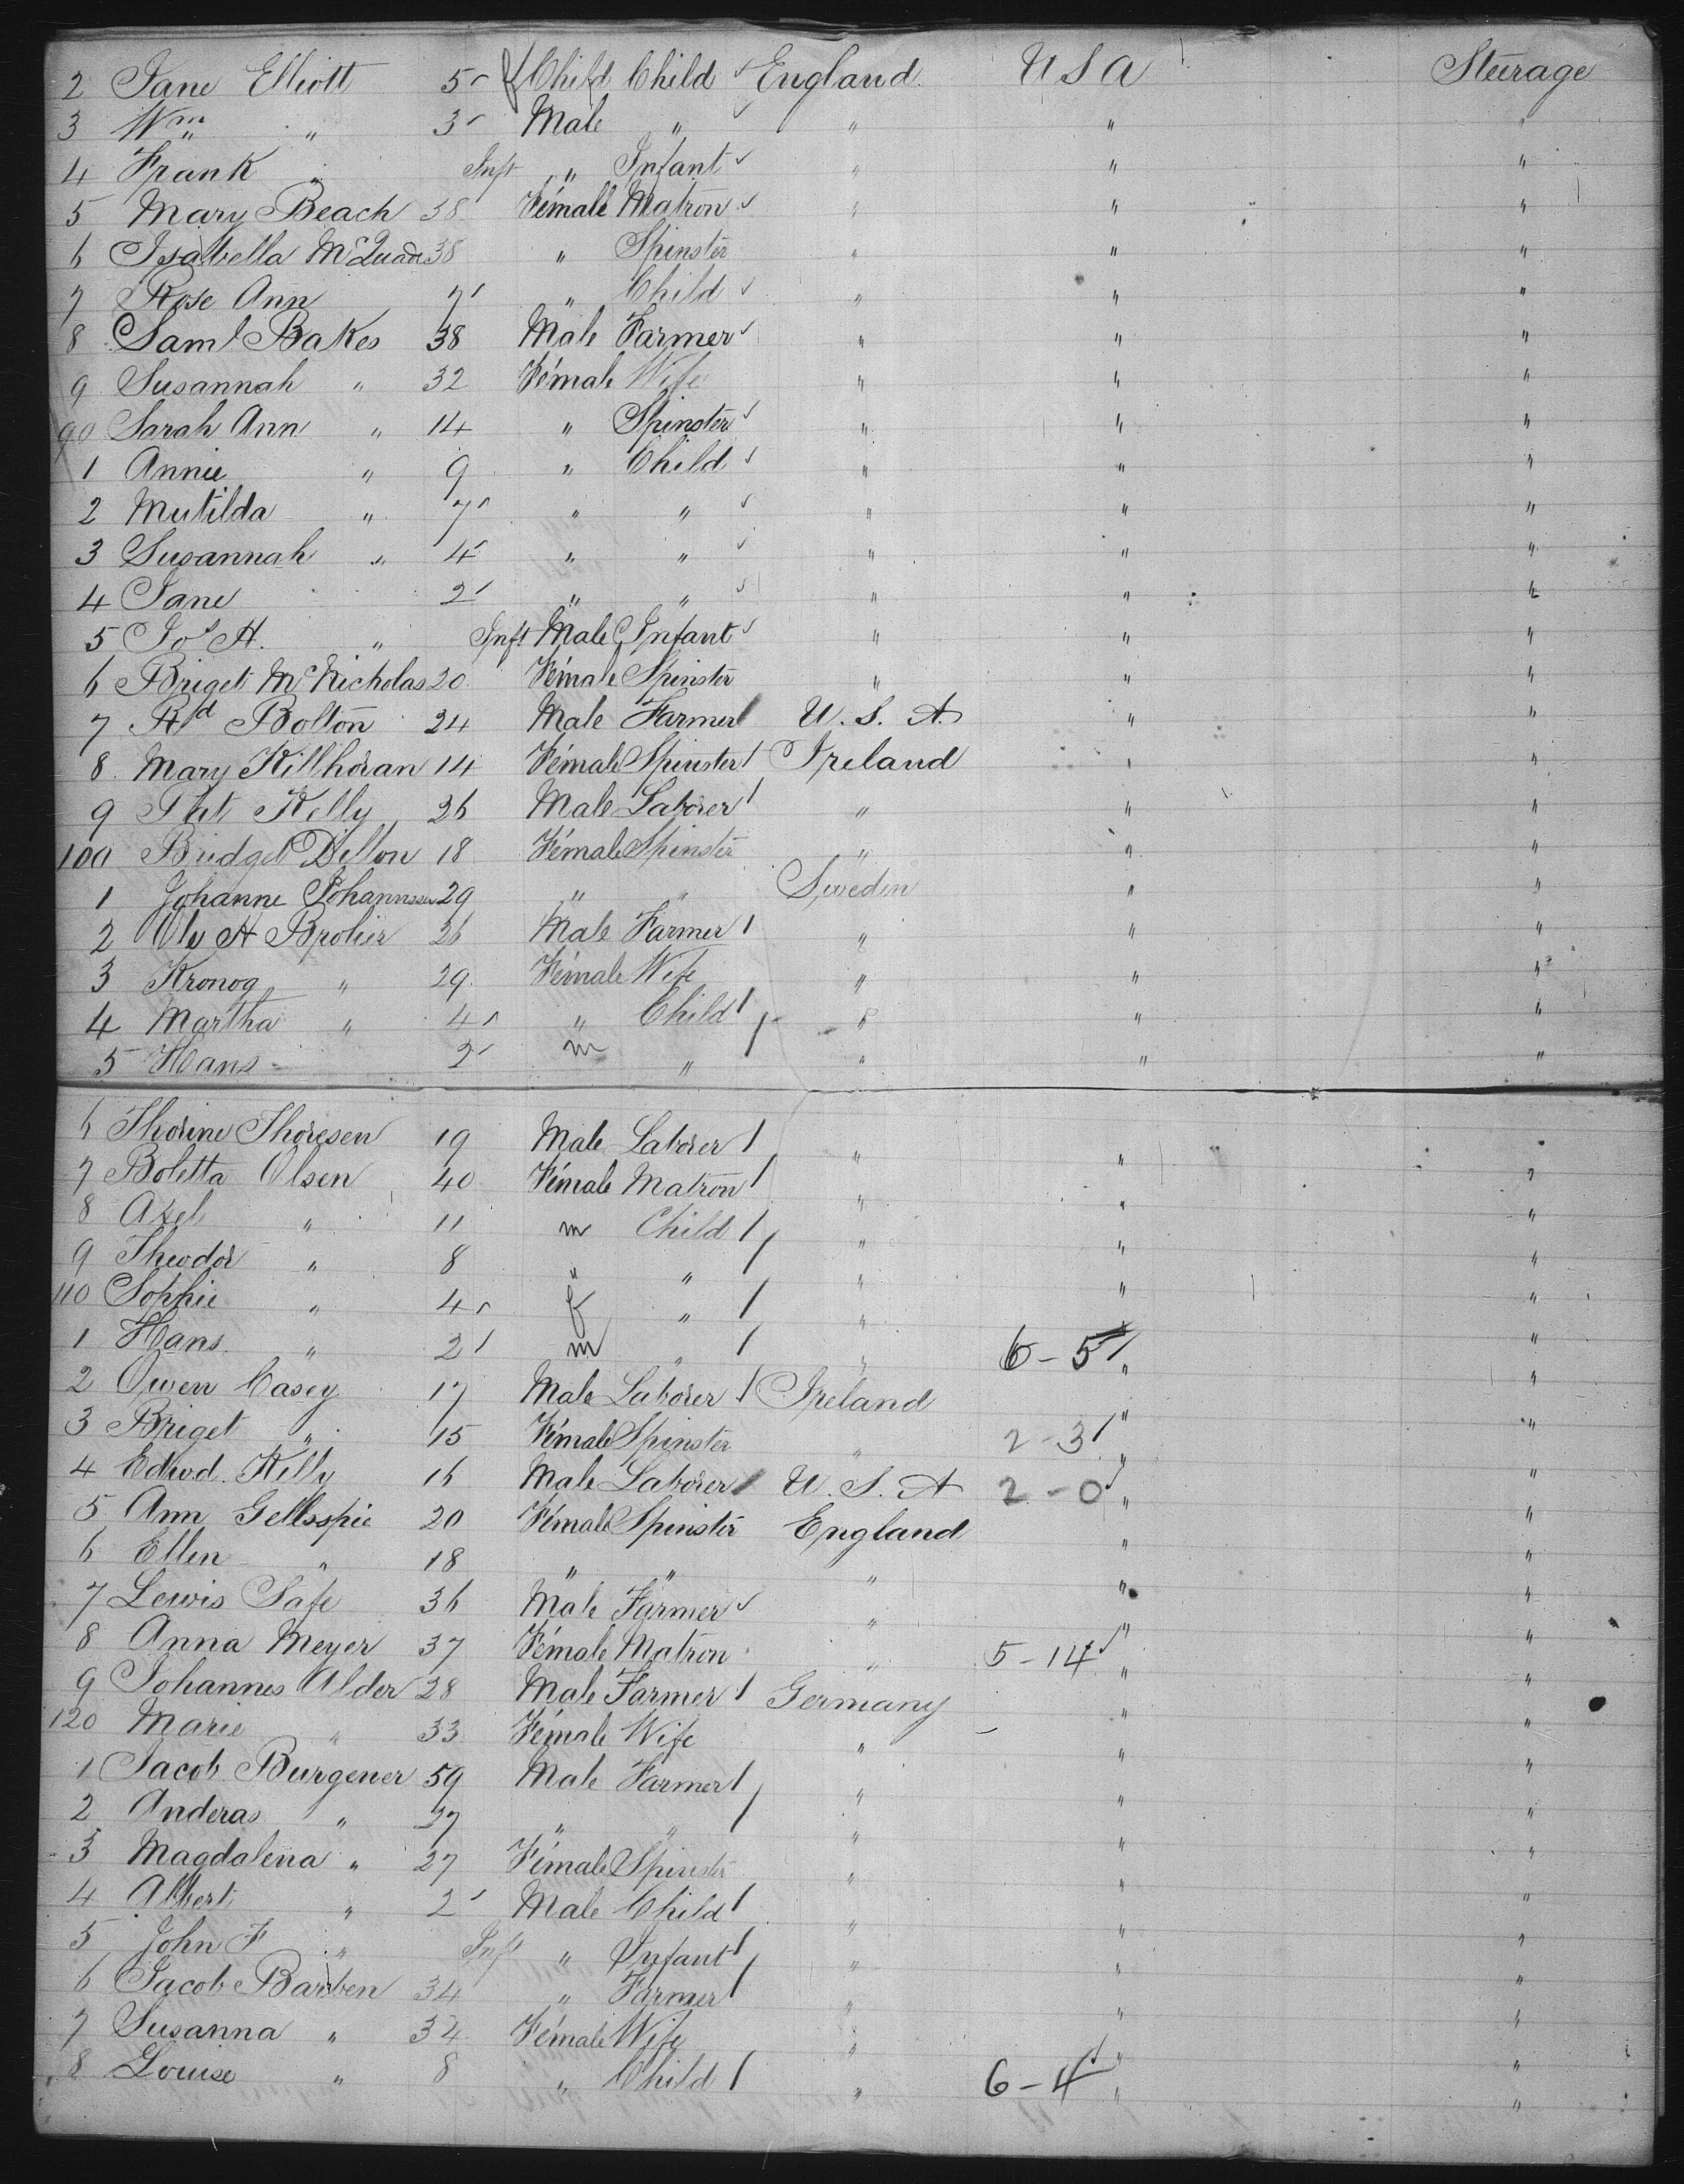 2 Jane Elliott 5 f Child Child England U S A Steerage
3 Wm " 3 Male " " " "
4 Frank " Inft " Infant " " "
5 Mary Beach 38 Female Matron " " "
6 Isabella McQuade 38 " Spinster " " "
7 Rose Ann 7 " Child " " "
8 Saml Bakes 38 Male Farmer " " "
9 Susannah " 32 Female Wife " " "
90 Sarah Ann " 14 " Spinster " " "
1 Annie " 9 " Child " " "
2 Mutilda " 7 " " " " "
3 Susannah " 4 " " " " "
4 Jane 2 " " " " "
5 Jos H. " Inft Male Infant " " "
6 Briget McNicholas 20 Female Spinster " " "
7 Rd Bolton 24 Male Farmer U. S. A. " "
8 Mary Killhoran 14 Female Spinster Ireland " "
9 Pat Kelly 26 Male Laborer " " "
100 Bridget Dillon 18 Female Spinster " " "
1 Johanne Johannssen 29 " " Sweden " "
2 Ole A 26 Male Farmer " " "
3 Kronog " 29 Female Wife " " "
4 Martha " 4 " Child " " "
5 Hans 2 m " " " "
6 Thorine Thoresen 19 Male Laborer " " "
7 Boletta Olsen 40 Female Matron " " "
8 Axel " 11 m Child " " "
9 Theodor " 8 " " " " "
110 Sophie " 4 f " " " "
1 Hans " 2 m " " 6-5 " "
2 Owen Casey 17 Male Laborer Ireland " "
3 Briget " 15 Female Spinster " 2-3 " "
4 Edwd. Killy 16 Male Laborer U. S. A 2-0 " "
5 Ann Gellsspie 20 Female Spinster England " "
6 Ellen " 18 " " " " "
7 Lewis Safe 36 Male Farmer " " "
8 Anna Meyer 37 Female Matron " 5-14 " "
9 Johannes Alder 28 Male Farmer Germany " "
120 Marie " 33 Female Wife " " "
1 Jacob Burgener 59 Male Farmer " " "
2 Anderas " 27 " " " " "
3 Magdalena " 27 Female Spinster " " "
4 Albert " 2 Male Child " " "
5 John F " Inft " Infant " " "
6 Jacob Barben 34 " Farmer " " "
7 Susanna " 34 Female Wife " " "
8 Louise " 8 " Child " 6-4 " "